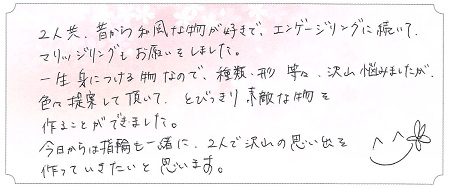 2人共、昔から和風な物が好きで、エンゲージリングに続いて、
マリッジリングもお願いをしました。
一生身につける物なので、種類・形 等々、沢山悩みましたが、
色々提案して頂いて、とびっきり素敵な物を
作ることができました。
今日からは指輪も一緒に、2人で沢山の思い出を
作っていきたいと思います。